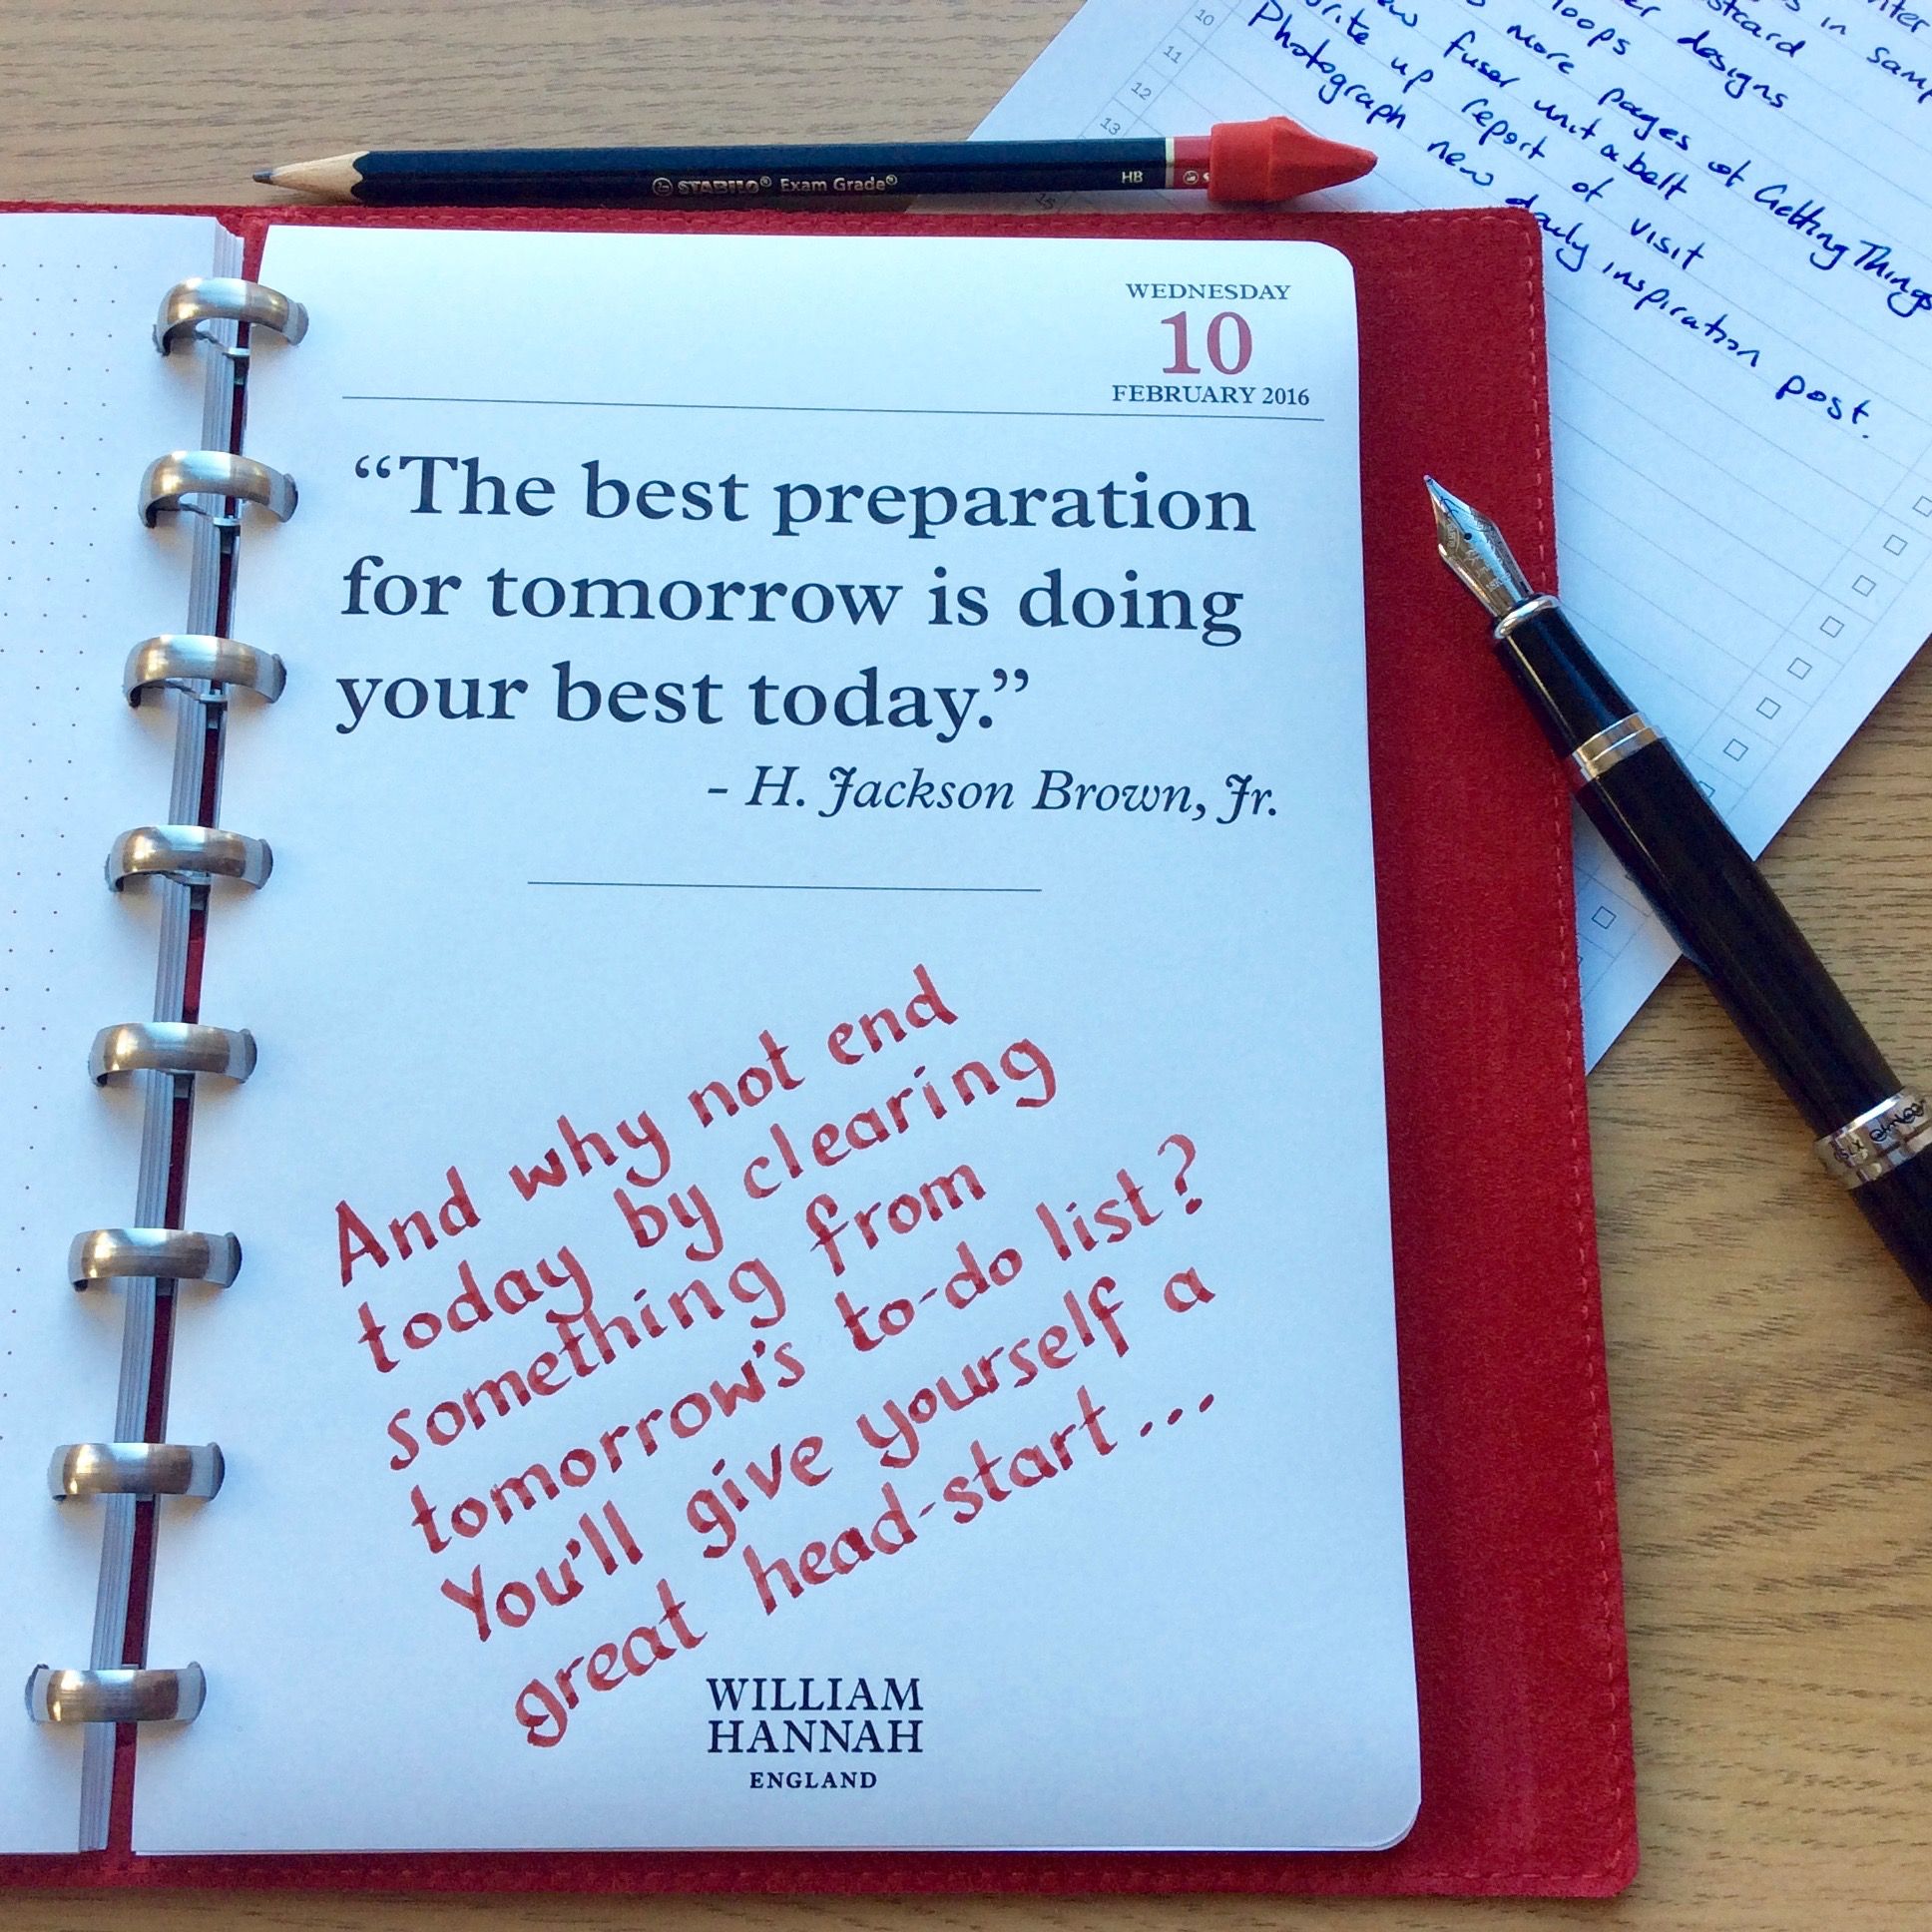 10
11
12
13
15
in sam
stcard
loops
designs
more pages of Getting Things
fuser unit & belt
write up report of visit
Photograph new daily inspiration post.
STABILO® Exam Grade®
HB
WEDNESDAY
10
FEBRUARY 2016
“The best preparation
for tomorrow is doing
your best today.”
- H. Jackson Brown, Jr.
And why not end
today by clearing
something from
tomorrow's to-do list?
You'll give yourself a
great head-start...
WILLIAM
HANNAH
ENGLAND